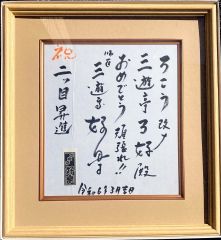 祝
二ッ目昇進
ろこう改メ
三遊亭ろ好殿
おめでとう
頑張れ!!
三遊亭好楽
令和六年三月吉日